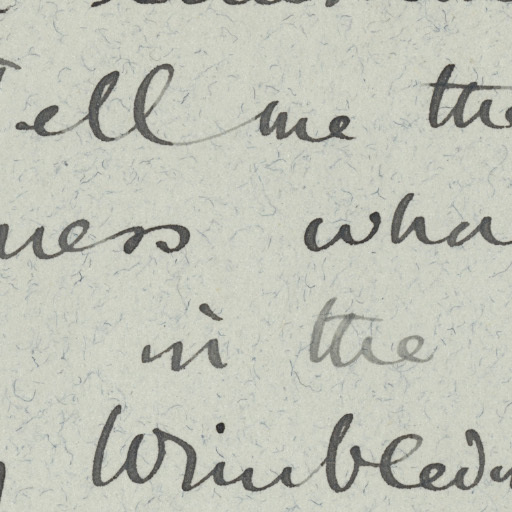 Tell me the
ness wha
in the
Wimbledon